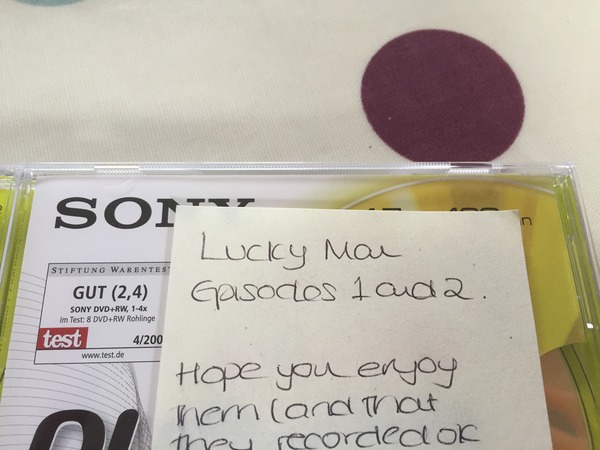 SONY
STIFTUNG WARENTEST
GUT (2,4)
SONY DVD+RW, 1-4x
Im Test: 8 DVD+RW Rohlinge
test 4/200
www.test.de
Lucky Man
Episodes 1 and 2.
Hope you enjoy
them (and that
they recorded OK